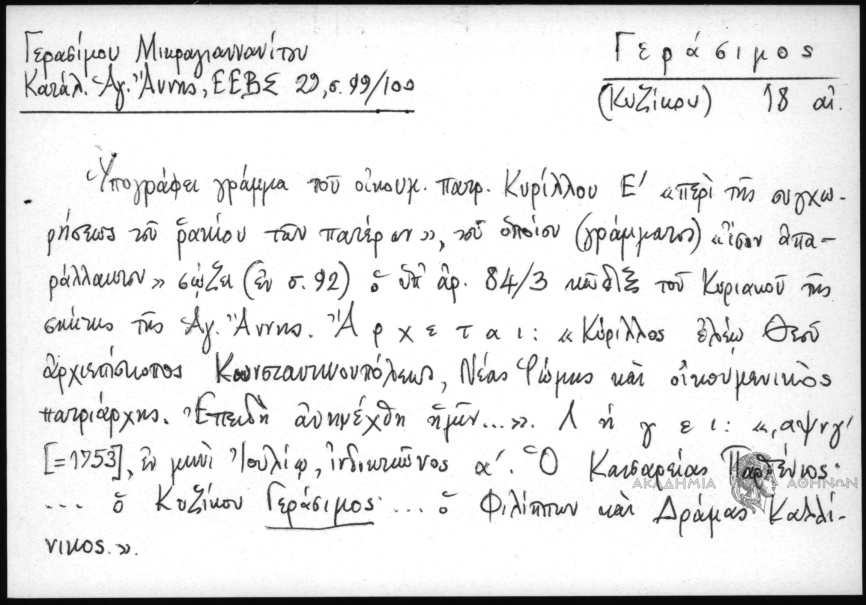 Γερασίμου Μικραγιαννανίτου
Κατάλ. Ἁγ. Ἄννης, ΕΕΒΣ 29, σ. 99/100
Γεράσιμος
(Κυζίκου) 18 αἰ.
Ὑπογράφει γράμμα τοῦ οἰκουμ. πατρ. Κυρίλλου Ε' «περὶ τῆς συγχω-
ρήσεως τοῦ ῥακίου τῶν πατέρων», τοῦ ὁποίου (γράμματος) «ἴσον ἀπα-
ράλλακτον» σῴζει (ἐν σ. 92) ὁ ὑπ' ἀρ. 84/3 κῶδιξ τοῦ Κυριακοῦ τῆς
σκήτης τῆς Ἁγ. Ἄννης. Ἄρχεται: «Κύριλλος ἐλέῳ Θεοῦ
ἀρχιεπίσκοπος Κωνσταντινουπόλεως, Νέας Ῥώμης καὶ οἰκουμενικὸς
πατριάρχης. Ἐπειδὴ ἀνηνέχθη ἡμῖν...». Λήγει: «͵αψνγ'
[=1753], ἐν μηνὶ Ἰουλίῳ, ἰνδικτιῶνος α'. Ὁ Καισαρείας Παρθένιος·
... ὁ Κυζίκου Γεράσιμος· ... ὁ Φιλίππων καὶ Δράμας Καλλί-
νικος.».
ΑΚΑΔΗΜΙΑ ΑΘΗΝΩΝ